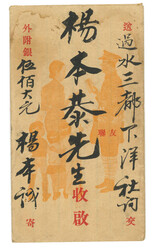 送過水三都下洋社詢交
友聯
楊本恭先生收啟
外附銀伍佰大元
楊本誠寄